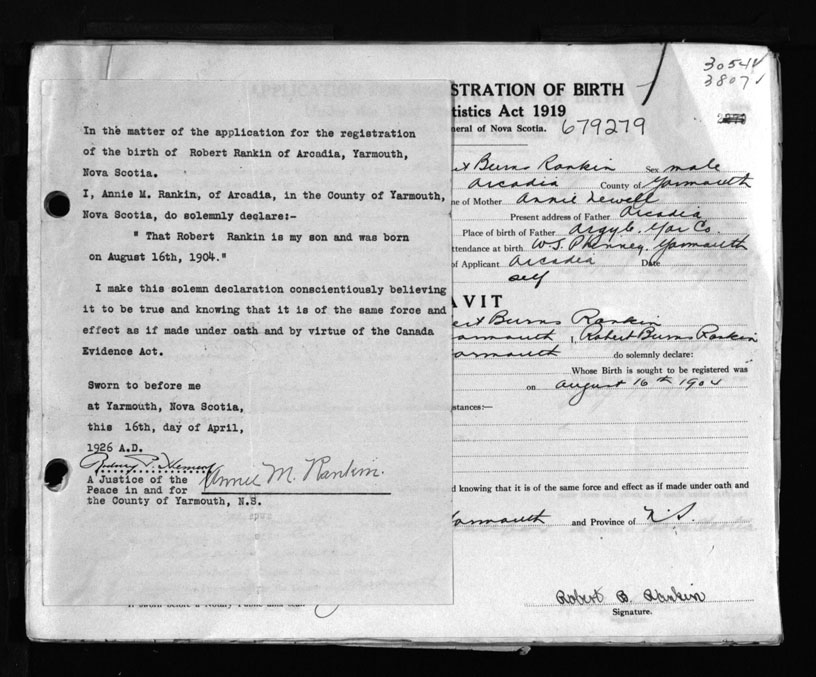 In the matter of the application for the registration
of the birth of Robert Rankin of Arcadia, Yarmouth,
Nova Scotia.
I, Annie M. Rankin, of Arcadia, in the County of Yarmouth,
Nova Scotia, do solemnly declare:-
" That Robert Rankin is my son and was born
on August 16th, 1904."
I make this solemn declaration conscientiously believing
it to be true and knowing that it is of the same force and
effect as if made under oath and by virtue of the Canada
Evidence Act.
Sworn to before me
at Yarmouth, Nova Scotia,
this 16th, day of April,
1926 A.D.
A Justice of the
Peace in and for
the County of Yarmouth, N.S.
Annie M. Rankin.
30541
3807
STRATION OF BIRTH
tistics Act 1919
neral of Nova Scotia. 679279
Burns Rankin Sex male
Arcadia County of Yarmouth
me of Mother Annie Newell
Present address of Father Arcadia
Place of birth of Father Argyle. Yar Co.
ttendance at birth W.J. Phinney. Yarmouth
of Applicant Arcadia Date
self
AVIT
Burns Rankin
armouth I, Robert Burns Rankin
armouth do solemnly declare:
Whose Birth is sought to be registered was
on August 16th 1904
stances:—
d knowing that it is of the same force and effect as if made under oath and
armouth and Province of N.S.
Robert B. Rankin
Signature.